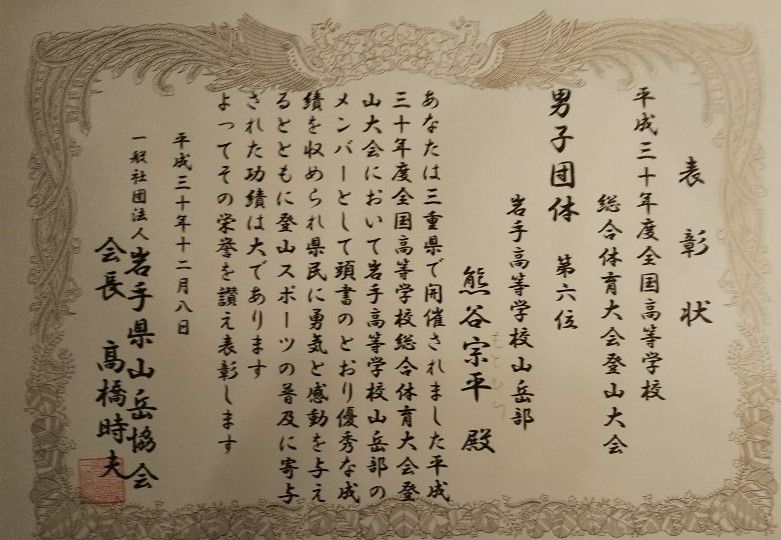 表彰状
平成三十年度全国高等学校
総合体育大会登山大会
男子団体 第六位
岩手高等学校山岳部
熊谷宗平 殿
あなたは三重県で開催されました平成
三十年度全国高等学校総合体育大会登
山大会において岩手高等学校山岳部の
メンバーとして頭書のとおり優秀な成
績を収められ県民に勇気と感動を与え
るとともに登山スポーツの普及に寄与
された功績は大であります
よってその栄誉を讃え表彰します
平成三十年十二月八日
一般社団法人岩手県山岳協会
会長 髙橋時夫